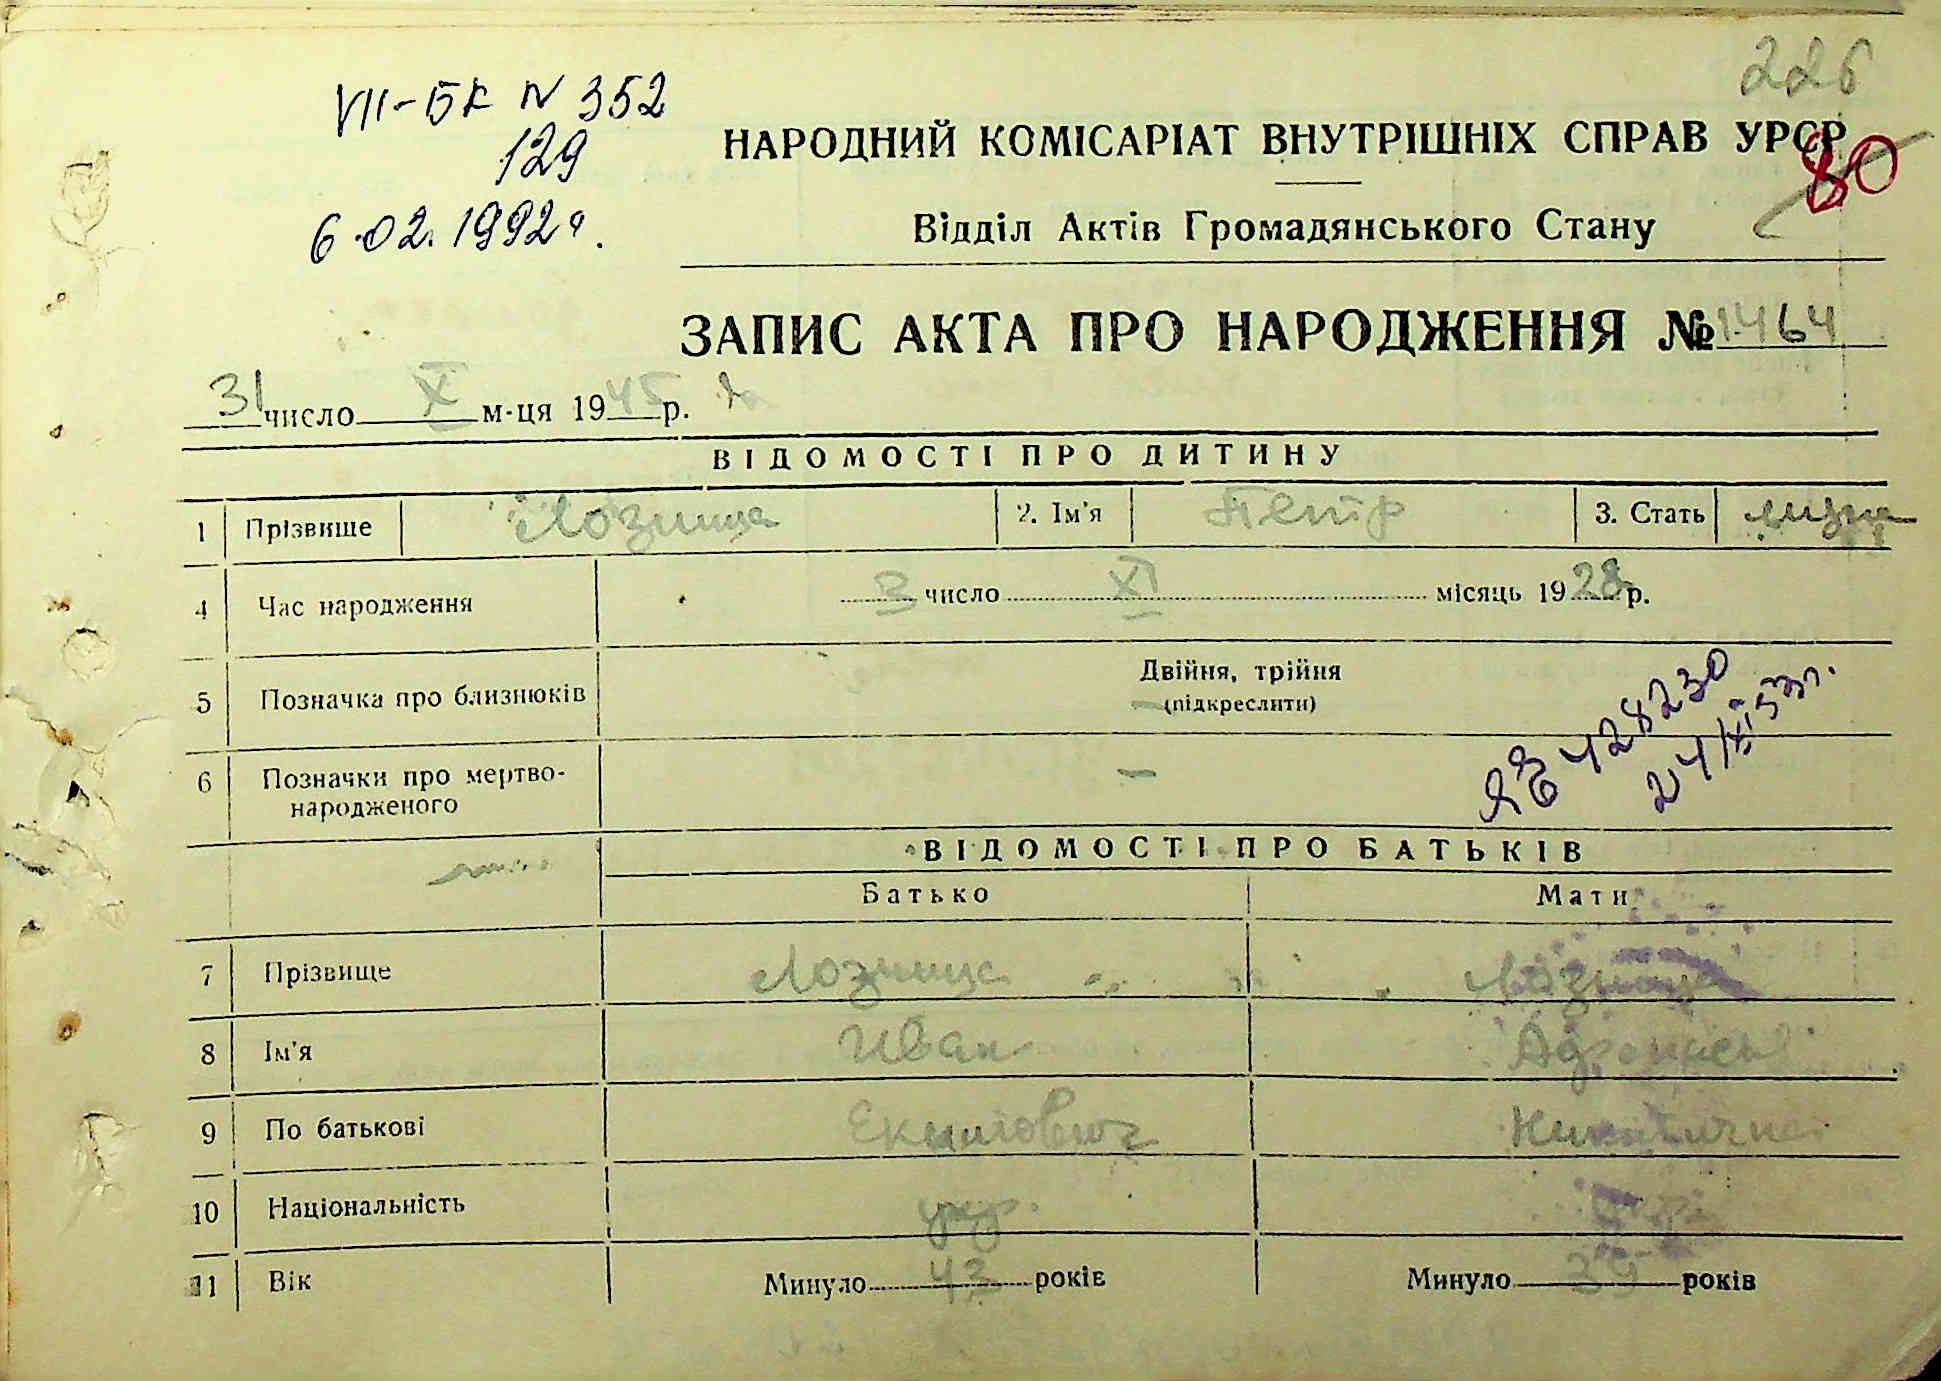 226
VII-БК N 352
129
6.02.1992г.
НАРОДНИЙ КОМІСАРІАТ ВНУТРІШНІХ СПРАВ УРСР
80
Відділ Актів Громадянського Стану
ЗАПИС АКТА ПРО НАРОДЖЕННЯ № 1464
31 число X м-ця 1945 р.
ВІДОМОСТІ ПРО ДИТИНУ
1 Прізвище Лозница 2. Ім'я Петр 3. Стать
4 Час народження 3 число XI місяць 1928 р.
5 Позначка про близнюків Двійня, трійня
(підкреслити)
6 Позначки про мертво-
народженого —
ЯЕ 428230
ВІДОМОСТІ ПРО БАТЬКІВ
Батько Мати
7 Прізвище Лозница Лозница
8 Ім'я Иван
9 По батькові
10 Національність укр.
11 Вік Минуло 43 років Минуло 39 років